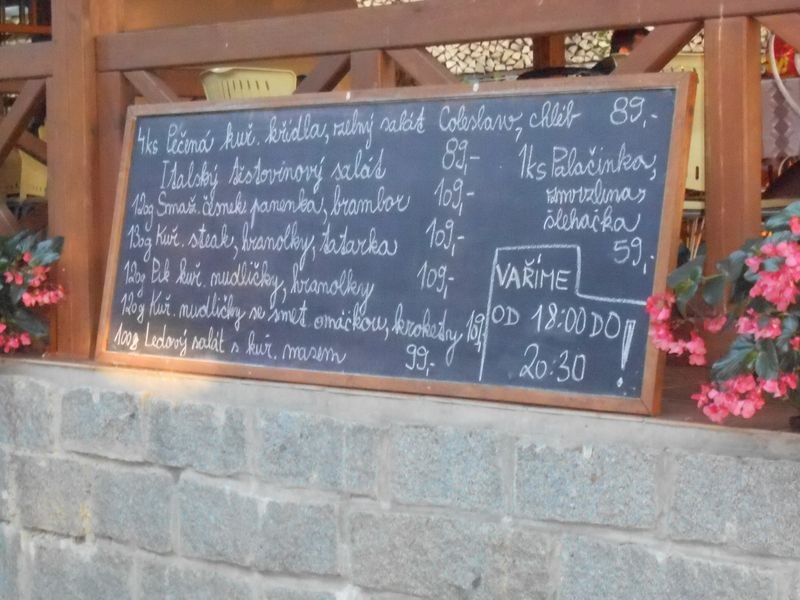 4ks Pečená kuř. křídla, zelný salát Coleslaw, chléb 89,-
Italský těstovinový salát 89,-
120g Smaž. česnek. panenka, brambor 109,-
130g Kuř. steak, hranolky, tatarka 109,-
120g Pik. kuř. nudličky, hranolky 109,-
120g Kuř. nudličky se smet. omáčkou, krokety
100g Ledový salát s kuř. masem 99,-
1ks Palačinka,
zmrzlina,
šlehačka
59,-
VAŘÍME
OD 18:00 DO
20:30 !